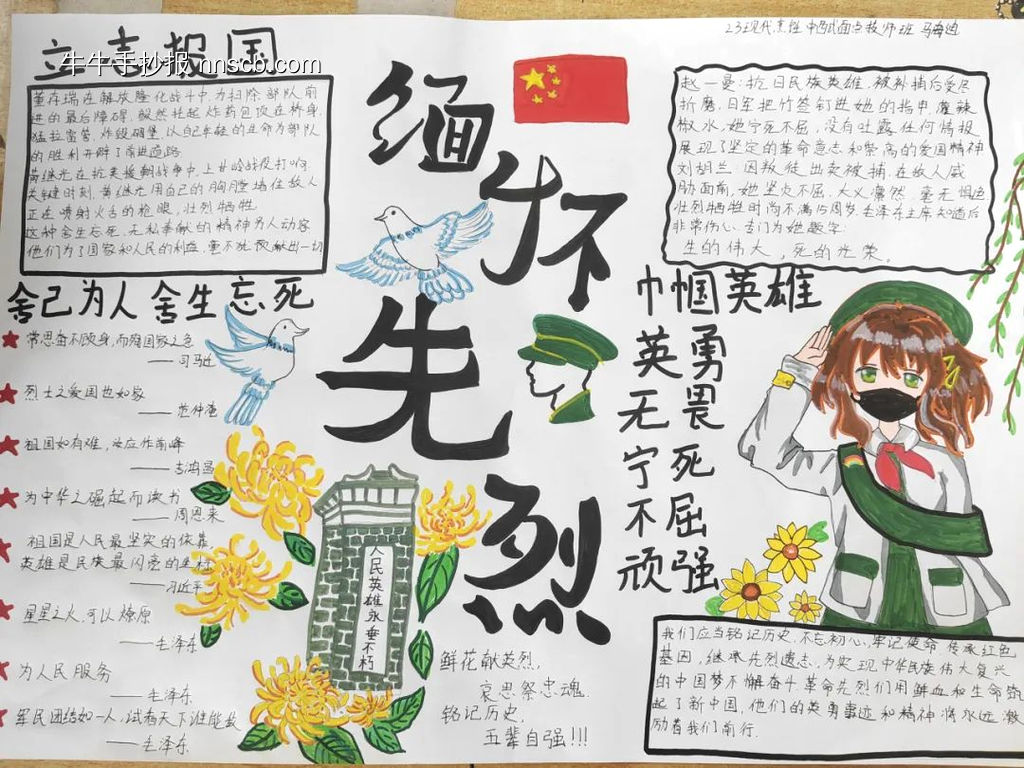 23现代烹饪中西式面点技师班 马海迪
立志报国
牛牛手抄报 nnscb.com
董存瑞在解放隆化战斗中,为扫除部队前
进的最后障碍,毅然托起炸药包顶在桥身,
猛拉雷管,炸毁碉堡,以自己年轻的生命为部队
的胜利开辟了前进道路
黄继光在抗美援朝战争中,上甘岭战役打响,
关键时刻,黄继光用自己的胸膛堵住敌人
正在喷射火舌的枪眼,壮烈牺牲
这种舍生忘死,无私奉献的精神另人动容
他们为了国家和人民的利益,毫不犹豫献出一切
舍己为人 舍生忘死
常思奋不顾身,而殉国家之急
——司马迁
烈士之爱国也如家
——范仲淹
祖国如有难,汝应作前峰
——吉鸿昌
为中华之崛起而读书
——周恩来
祖国是人民最坚实的依靠
英雄是民族最闪亮的坐标
——习近平
星星之火,可以燎原
——毛泽东
为人民服务
——毛泽东
军民团结如一人,试看天下谁能敌
——毛泽东
缅怀先烈
人民英雄永垂不朽
鲜花献英烈,
哀思祭忠魂.
铭记历史,
吾辈自强!!!
赵一曼:抗日民族英雄,被补捕后受尽
折磨,日军把竹签钉进她的指甲,灌辣
椒水,她宁死不屈,没有吐露任何情报
展现了坚定的革命意志和崇高的爱国精神
刘胡兰:因叛徒出卖被捕,在敌人威
胁面前,她坚贞不屈,大义凛然,毫无惧色
壮烈牺牲时尚不满15周岁,毛泽东主席知道后
非常伤心,专门为她题字:
生的伟大,死的光荣。
巾帼英雄
英勇
无畏
宁死
不屈
顽强
我们应当铭记历史,不忘初心,牢记使命,传承红色
基因,继承先烈遗志,为实现中华民族伟大复兴
的中国梦不懈奋斗.革命先烈们用鲜血和生命筑
起了新中国,他们的英勇事迹和精神将永远激
励着我们前行.